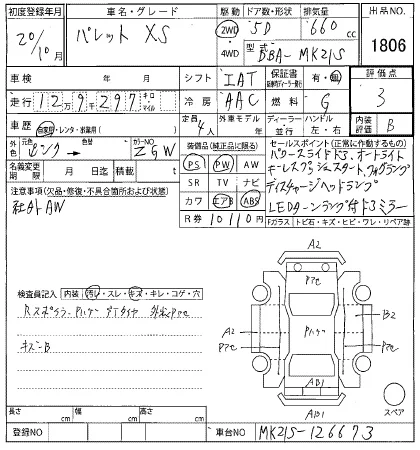 初度登録年月
20/10月
車名・グレード
パレット XS
駆動
2WD
4WD
ドア数・形状
5D
排気量
660cc
型式
DBA-MK21S
出品NO.
1806
車検 年 月
シフト
IAT
保証書
有・無
評価点
3
走行 12万9千297 キロ マイル
冷房
AAC
燃料
G
車歴 自家用・レンタ・営業用( )
定員
4人
ディーラー 並行
ハンドル 左・右
内装評価
B
外色
元色
ピンク
色替
カラーNO
ZGW
名義変更期限 月 日迄
積載 t
装備品(純正品に限る)
PS PW AW
SR TV ナビ
カワ エアB ABS
R券 10110円
セールスポイント(正常に作動するもの)
パワースライドドア、オートライト
キーレスプッシュスタート、フォグランプ
ディスチャージヘッドランプ
LEDターンランプ付ドアミラー
注意事項(欠品・修復・不具合箇所および状態)
社外AW
Fガラス トビ石・キズ・ヒビ・ワレ・リペア跡
検査員記入 内装 汚レ・スレ・キズ・キレ・コゲ・穴
キズ-B
A2
Pアセ
A2
Pアセ
Pハゲ
B2
Pアセ
AB1
AB1
スペア
長さ cm
幅 cm
高さ cm
登録NO
車台NO MK21S-126673